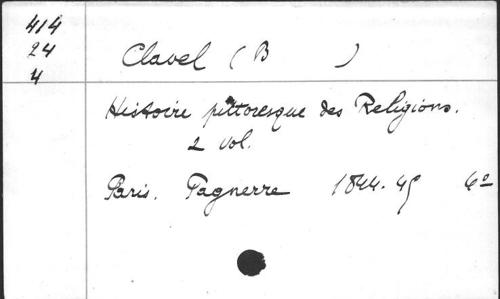 414
24
4
Clavel (B )
Histoire pittoresque des Religions.
2 vol.
Paris. Pagnerre 1844-45 4º